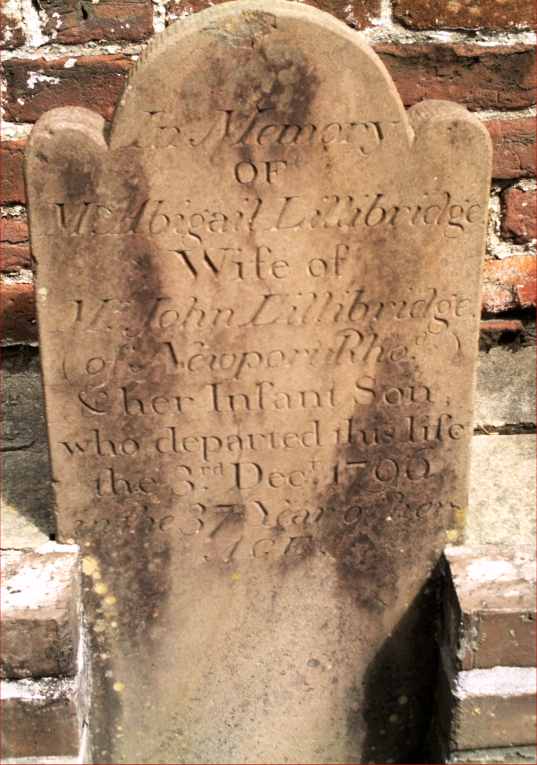 In Memory
OF
Mrs Abigail Lillibridge
Wife of
Mr. John Lillibridge
(of Newport Rho.d)
& her Infant Son,
who departed this life
the 3.rd Decr. 1790
in the 37 Year of her
AGE.